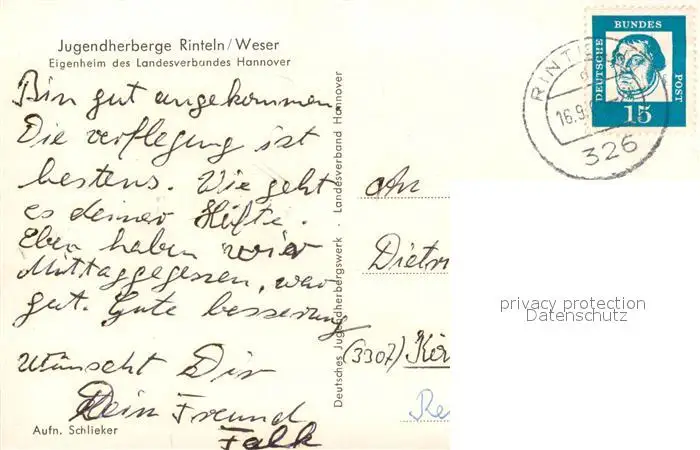 Jugendherberge Rinteln/Weser
Eigenheim des Landesverbandes Hannover
Bin gut angekommen.
Die verflegung ist
bestens. Wie geht
es deiner Hüfte.
Eben haben wir
Mittaggegessen, war
gut. Gute besserung
Wünscht Dir
Dein Freund
Falk
Aufn. Schlieker
Deutsches Jugendherbergswerk · Landesverband Hannover
DEUTSCHE
BUNDES
POST
15
RINT
16.9.
326
An
Diet
(3307)
privacy protection
Datenschutz